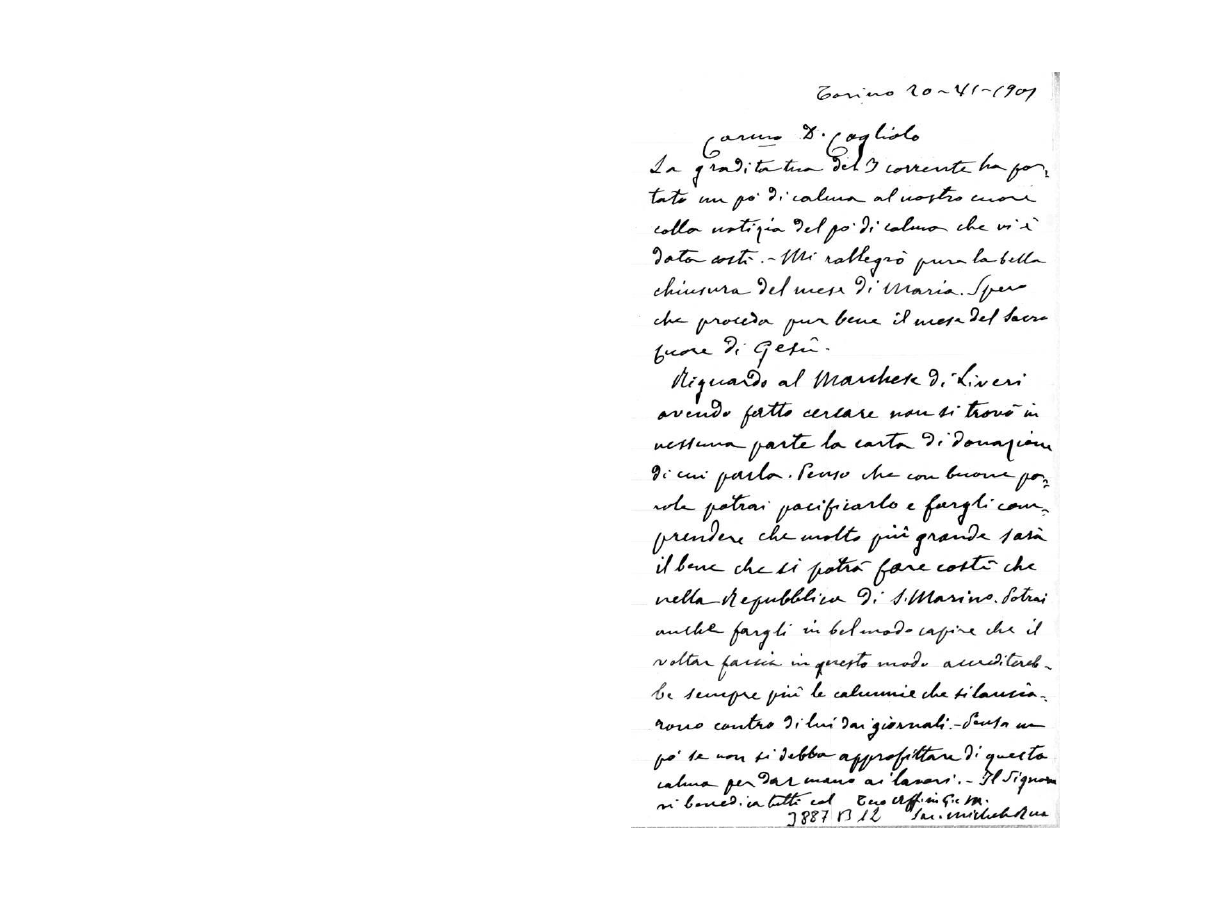 Torino 20-VI-1901
Carmo D. Cogliolo
La gradita tua del 7 corrente ha por-
tato un po' di calma al nostro cuore
colla notizia del po' di calma che vi è
data costì. - Mi rallegrò pure la bella
chiusura del mese di Maria. Spero
che proceda pur bene il mese del Sacro
Cuore di Gesù.
Riguardo al Marchese di Liveri
avendo fatto cercare non si trovò in
nessuna parte la carta di donazione
di cui parla. Penso che con buone pa-
role potrai pacificarlo e fargli com-
prendere che molto più grande sarà
il bene che si potrà fare costì che
nella Repubblica di S. Marino. Potrai
anche fargli in bel modo capire che il
voltar faccia in questo modo accreditereb-
be sempre più le calunnie che si lancia-
rono contro di lui dai giornali. - Pensa un
po' se non si debba approfittare di questa
calma per dar mano ai lavori. - Il Signore
vi benedica tutti col Tuo aff. in G. e M.
3887 B 12 Sac. Michele Rua